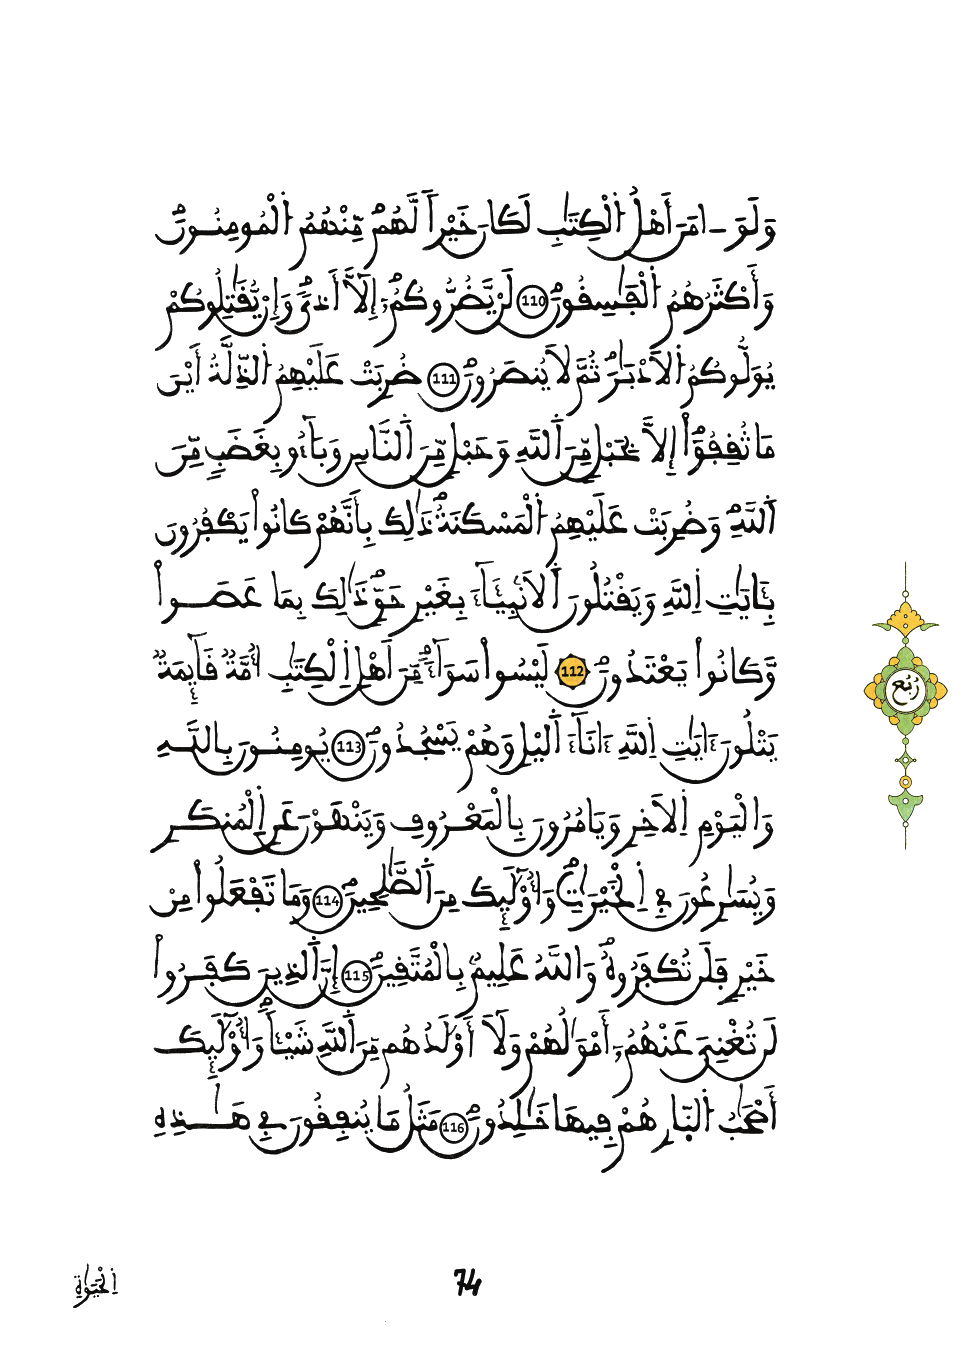 وَلَوَ ـ امَنَ أَهْلُ اُ۬لْكِتَٰبِ لَكَانَ خَيْراٗ لَّهُمۖ مِّنْهُمُ اُ۬لْمُومِنُونَۖ
وَأَكْثَرُهُمُ اُ۬لْفَٰسِقُونَۖ 110 لَنْ يَّضُرُّوكُمُۥٓ إِلَّآ أَذىٗۖ وَإِنْ يُّقَٰتِلُوكُمْ
يُوَلُّوكُمُ اُ۬لَادْبَٰرَۖ ثُمَّ لَا يُنصَرُونَۖ 111 ضُرِبَتْ عَلَيْهِمُ اُ۬لذِّلَّةُ أَيْنَ
مَا ثُقِفُوٓاْ إِلَّا بِحَبْلٖ مِّنَ اَ۬للَّهِ وَحَبْلٖ مِّنَ اَ۬لنَّاسِ وَبَآءُو بِغَضَبٖ مِّنَ
اَ۬للَّهِۖ وَضُرِبَتْ عَلَيْهِمُ اُ۬لْمَسْكَنَةُۖ ذَٰلِكَ بِأَنَّهُمْ كَانُواْ يَكْفُرُونَ
بِـَٔايَٰتِ اِ۬للَّهِ وَيَقْتُلُونَ اَ۬لَانۢبِئَآءَ بِغَيْرِ حَقّٖۖ ذَٰلِكَ بِمَا عَصَواْ
وَّكَانُواْ يَعْتَدُونَۖ 112 لَيْسُواْ سَوَآءٗۖ مِّنَ اَهْلِ اِ۬لْكِتَٰبِ أُمَّةٞ قَآئِمَةٞ
يَتْلُونَ ءَايَٰتِ اِ۬للَّهِ ءَانَآءَ اَ۬ليْلِ وَهُمْ يَسْجُدُونَۖ 113 يُومِنُونَ بِاللَّهِ
وَالْيَوْمِ اِ۬لَاخِرِ وَيَامُرُونَ بِالْمَعْرُوفِ وَيَنْهَوْنَ عَنِ اِ۬لْمُنكَرِ
وَيُسَٰرِعُونَ فِے اِ۬لْخَيْرَٰتِۖ وَأُوْلَٰٓئِكَ مِنَ اَ۬لصَّٰلِحِينَۖ 114 وَمَا تَفْعَلُواْ مِنْ
خَيْرٖ فَلَن تُكْفَرُوهُۖ وَاللَّهُ عَلِيمُۢ بِالْمُتَّقِينَۖ 115 إِنَّ اَ۬لذِينَ كَفَرُواْ
لَن تُغْنِيَ عَنْهُمُۥٓ أَمْوَٰلُهُمْ وَلَآ أَوْلَٰدُهُم مِّنَ اَ۬للَّهِ شَيْـٔاٗۖ وَأُوْلَٰٓئِكَ
أَصْحَٰبُ اُ۬لنّ۪ارِ هُمْ فِيهَا خَٰلِدُونَۖ 116 مَثَلُ مَا يُنفِقُونَ فِے هَٰذِهِ
رُبُع
74
اِ۬لْحَيَوٰةِ